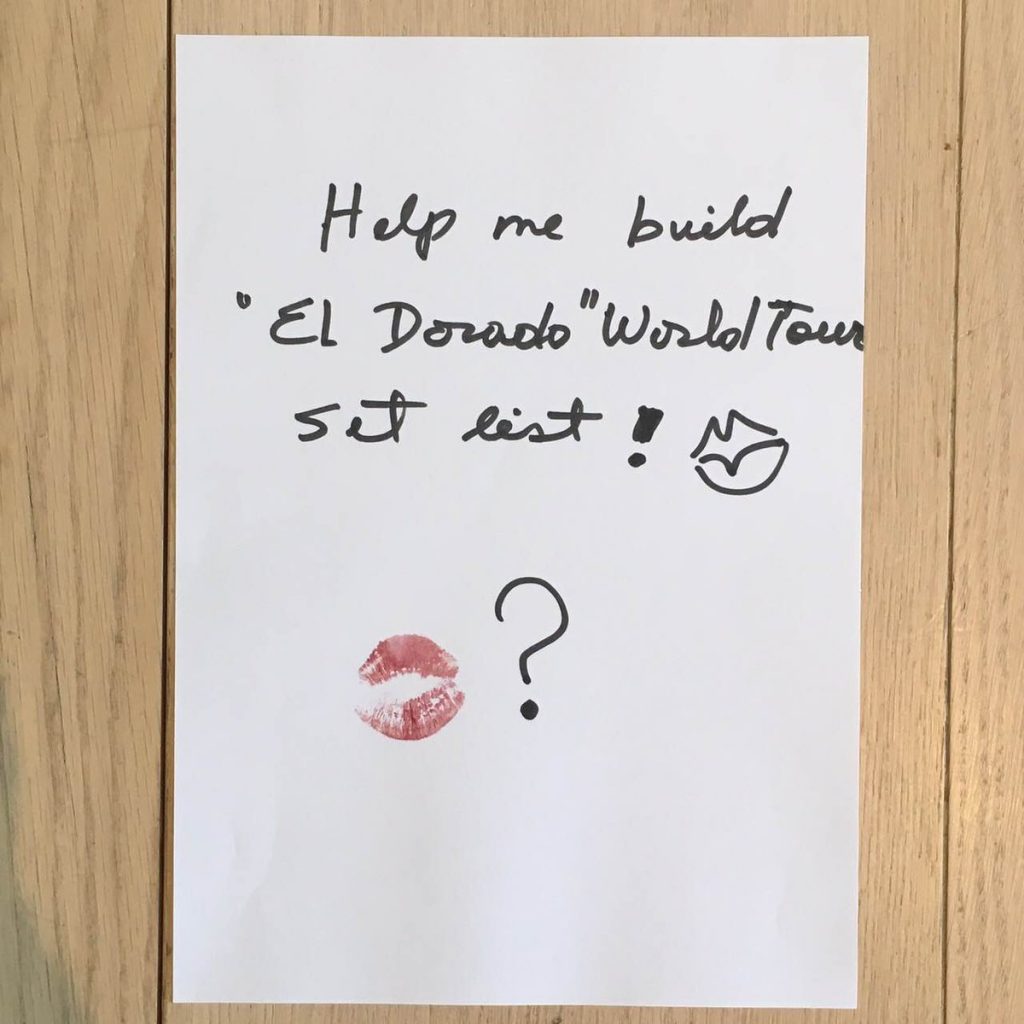 Help me build
"El Dorado" World Tour
set list!
?